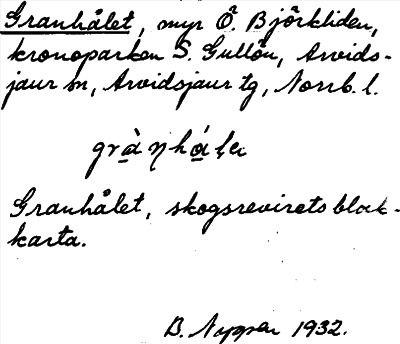 Granhålet, myr Ö. Björkliden,
kronoparken S. Gullön, Arvids-
jaur sn, Arvidsjaur tg, Norrb. l.
Granhålet, skogsrevirets block-
karta.
B. 1932.